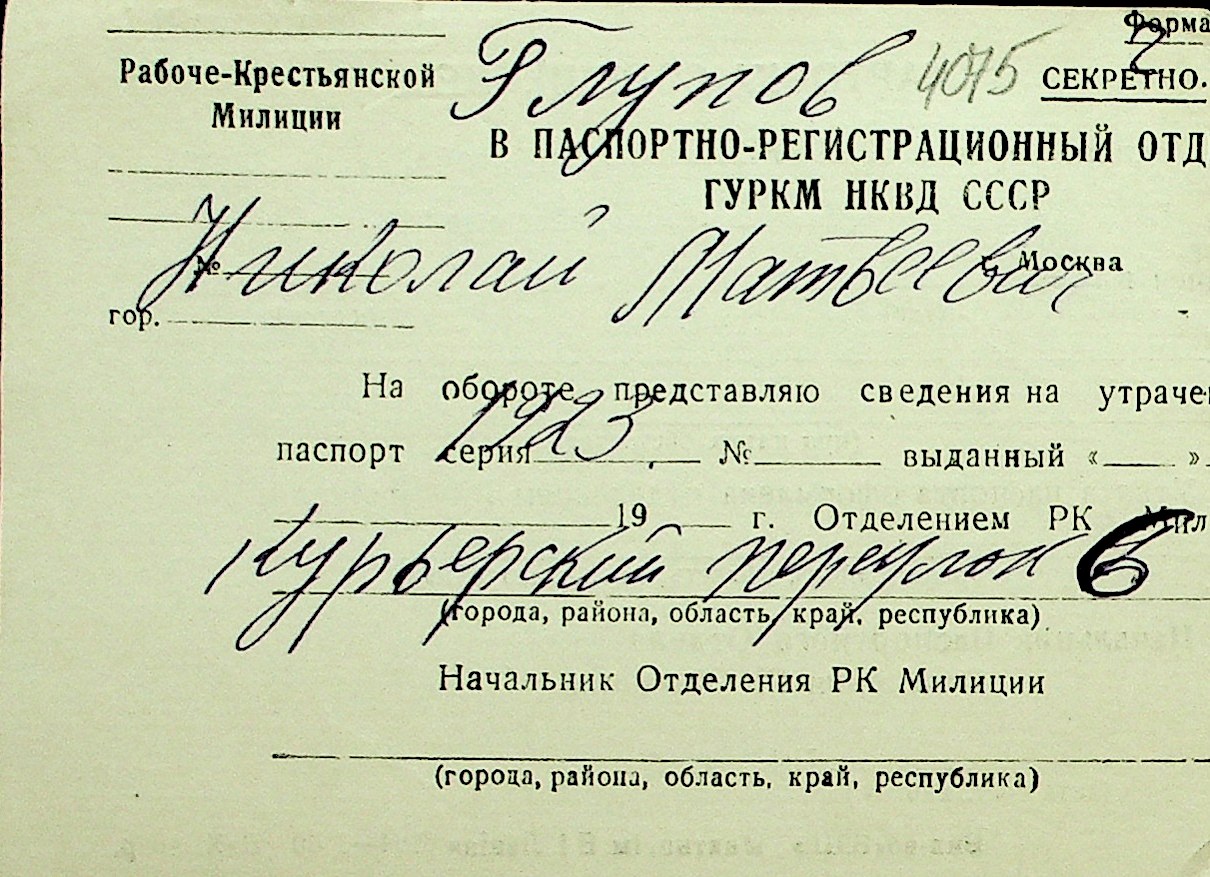 Форма
7
Рабоче-Крестьянской
Милиции
Глупов 4075 СЕКРЕТНО.
В ПАСПОРТНО-РЕГИСТРАЦИОННЫЙ ОТД
ГУРКМ НКВД СССР
Николай Матвеевич
№ г. Москва
гор.
На обороте представляю сведения на утрачен
1923
паспорт серия № выданный « »
19 г. Отделением РК Мил
Курьерский переулок 6
(города, района, область, край, республика)
Начальник Отделения РК Милиции
(города, района, область, край, республика)